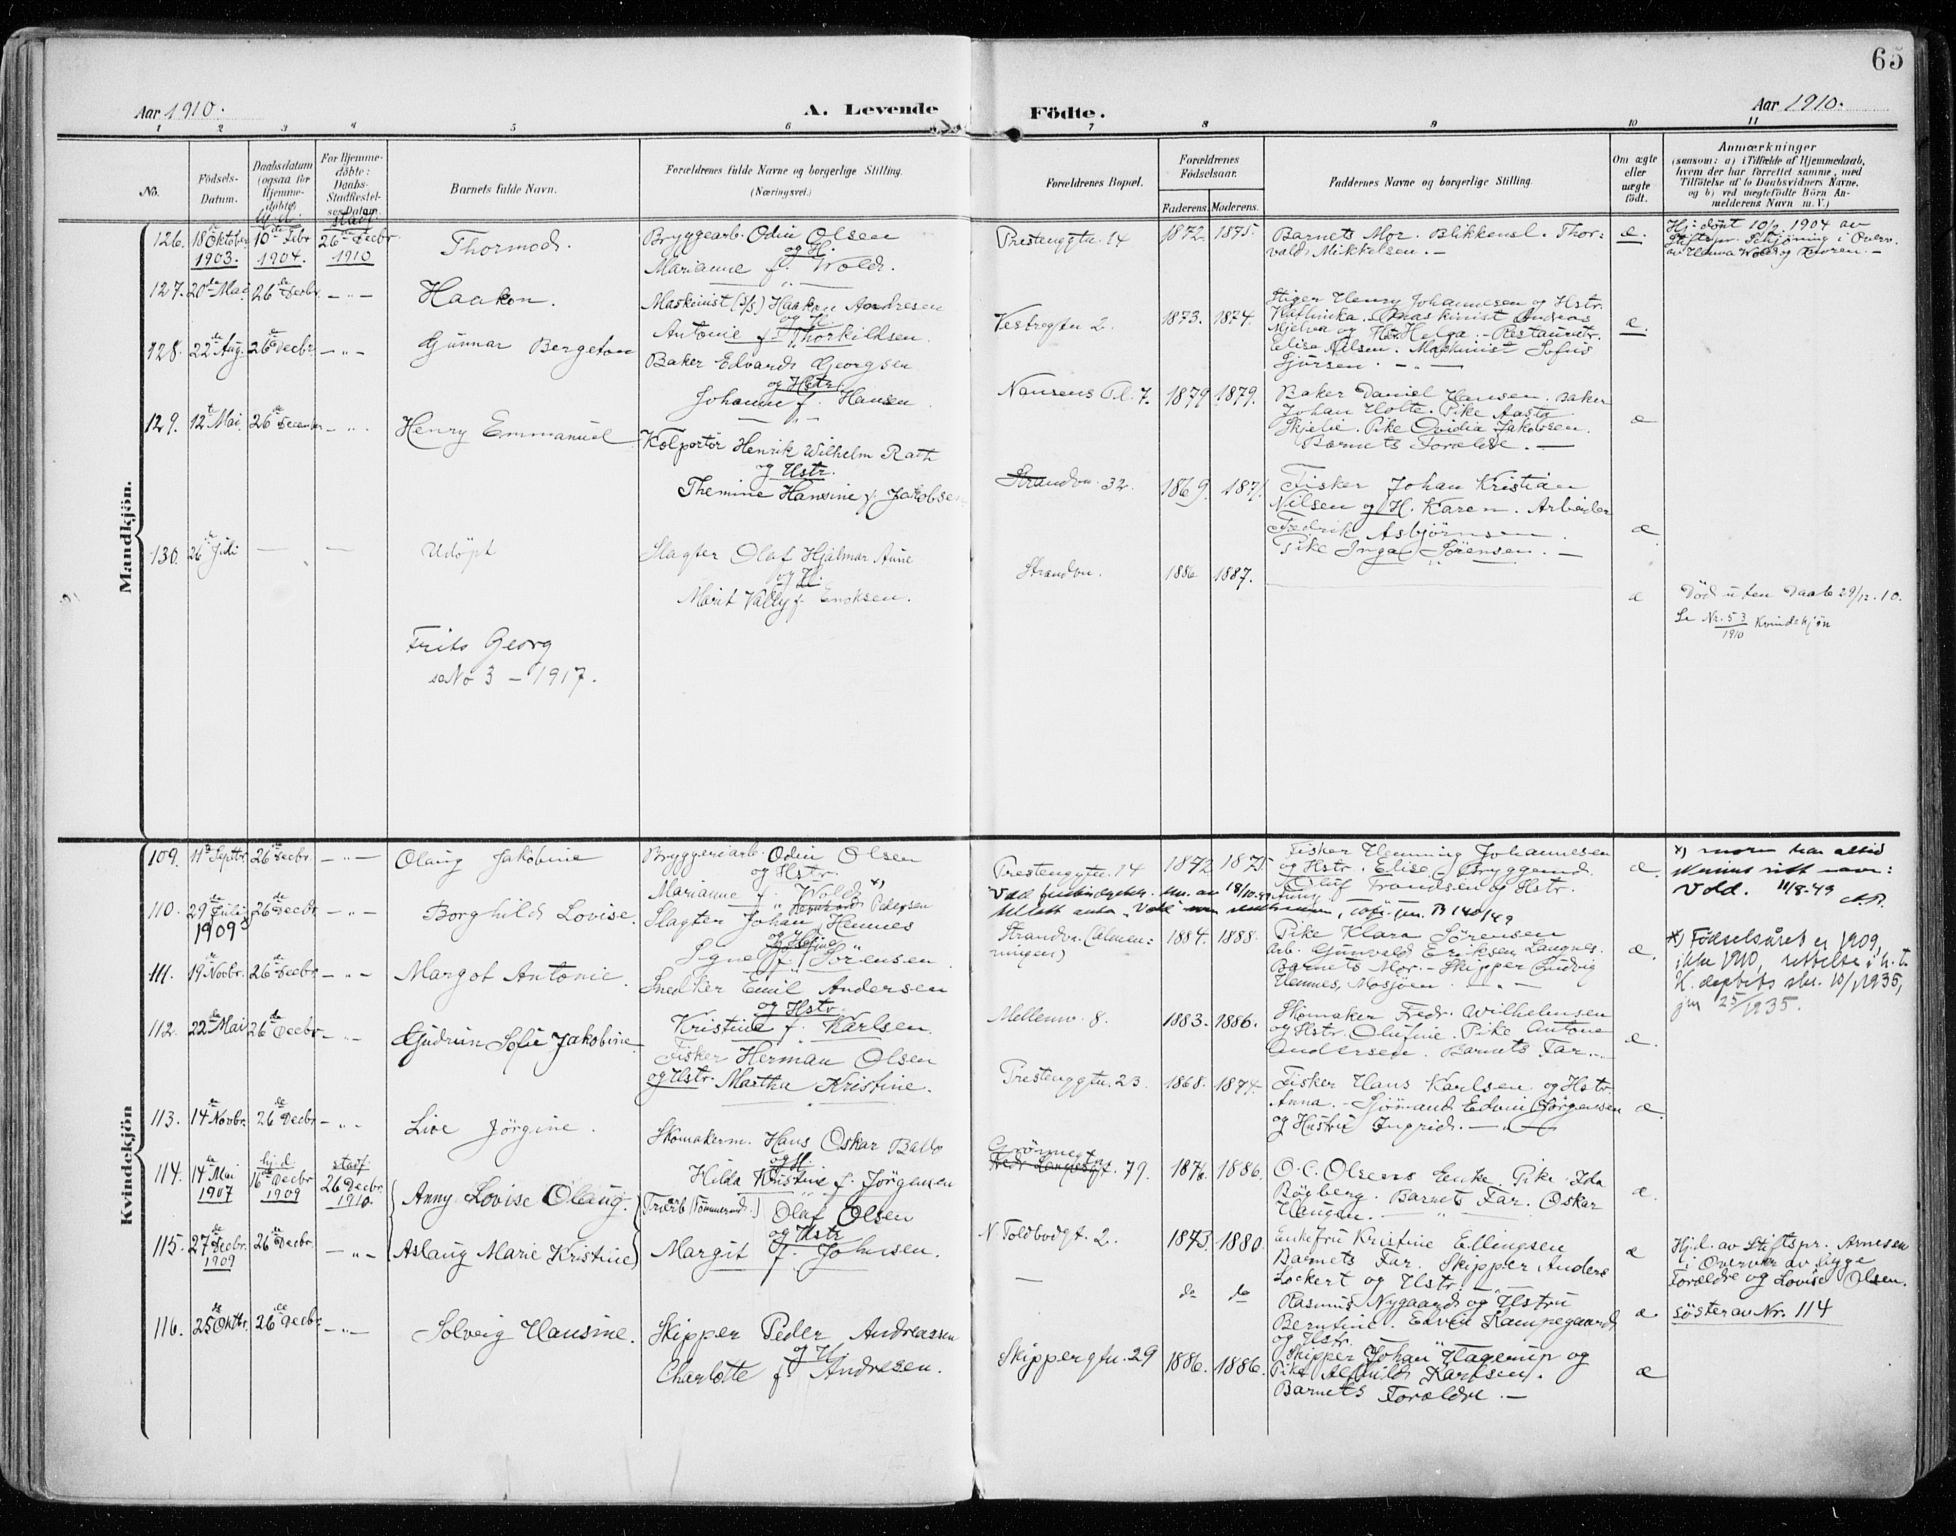 65
Aar 1910.
A. Levende Födte.
Aar 1910.
1 2 3 4 5 6 7 8 9 10 11
No.
Födsels-
Datum.
Daabsdatum
(ogsaa for
Hjemme-
döbte)
For Hjemme-
döbte:
Daabs-
Stadfæstel-
ses Datum
Barnets fulde Navn.
Forældrenes fulde Navne og borgerlige Stilling.
(Næringsvei.)
Forældrenes Bopæl.
Forældrenes
Födselsaar.
Faderens. Moderens.
Faddernes Navne og borgerlige Stilling.
Om ægte
eller
uægte
födt.
Anmærkninger
(saasom: a) i Tilfælde af Hjemmedaab,
hvem der har forrettet samme, med
Tilföielse af to Daabsvidners Navne,
og b) ved uægtefödte Börn An-
melderens Navn m. V.)
Mandkjön.
126. 18de Oktober 1903. hj.d. 10de Febr 1904. stadf 26de Decbr 1910
Thormod.
Bryggearb. Odin Olsen
og H.
Marianne f. Wold.
Prestenggtn. 14 1872 1875
Barnets Mor. Blikkensl. Thor-
vald Mikkelsen. —
e.
Hj. döpt 10/2 1904 av
Stiftspr.
127. 20de Mai 26de Decbr — " —
Haakon.
Maskinist (d/s) Haakon Andresen
og H.
Antonie f. Thorkildsen.
Vestregtn 2. 1873. 1874.
Stiger Henry Johannesen og Hstr.
Maskinist Andreas
Mjelva og Hstr Helga - Restauratr.
Elise Nilsen. Maskinist Sofus
e.
128. 22de Aug. 26de Decbr. — " —
Gunnar Bergeton
Baker Edvard Georgsen
og Hstr.
Johanne f. Hansen
Nansens Pl. 7. 1879 1879.
Baker Daniel Hansen. Baker
Johan Holte. Pike Aasta
Skjelie. Pike Ovidia Jakobsen.
Barnets Forældre. —
e
129. 12te Mai. 26de December — " —
Henry Emmanuel
Kolportör Henrik Wilhelm Rath
og Hstr.
Themine Hansine f. Jakobsen
Strandvn. 32. 1869. 1871.
Fisker Johan Kristian
Nilsen og H. Karen. Arbeider
Fredrik Asbjörnsen.
Pike Inga Sörensen. —
æ
130. 26de Juli — —
Udöpt
Slagter Olaf Hjalmar Aune
og H.
Marit Valby f. Enoksen.
Strandvn. 1886 1887.
æ
Död uten Daab 29/12. 10.
Se Nr. 53/1910 Kvindekjön
Frits Georg
se No 3 - 1917.
Kvindekjön
109. 11te Septbr. 26de Decbr. — " —
Olaug Jakobine
Bryggeriarb. Odin Olsen
og Hstr.
Marianne f. Wold x)
Prestenggtn. 14 1872 1875
Fisker Hemming Johannesen
og Hstr. Elise. Bryggemd.
Oluf Trondsen og Hstr.
æ.
x) moren har altid
skrevet sitt navn:
Vold. 11/8-49
110. 29de Juli 1909 26de Decbr. — " —
Borghild Lovise.
Slagter Johan Pedersen
Hemnes
og H.
Signe f. Sörensen
Strandvn. (Almen-
ningen) 1884. 1888.
Pike Klara Sörensen
Arb. Gunvald Eriksen Langnes.
Barnets Mor. - Skipper Ludvig
Hemnes, Mosjöen. — " —
æ.
x) Födselsåret er 1909,
ikke 1910, rettelse i h.t.
K. deptets skr. 10/1 1935,
jm 25/1 1935.
111. 19de Novbr. 26de Decbr. — " —
Margot Antonie.
Snedker Emil Andersen
og Hstr.
Kristine f. Karlsen.
Mellemv. 8. 1883. 1886.
Skomaker Fredr. Wilhelmsen
og Hstr. Olufine. Pike Antone
Andersen. Barnets Far. —
e.
112. 22de Mai 26de Decbr. — " —
Gudrun Sofie Jakobine.
Fisker Herman Olsen
og Hstr. Martha Kristine.
Prestenggtn. 23. 1868. 1874.
Fisker Hans Karlsen og Hstr
Anna. - Sjömand Edvin Jörgensen
og Hustru Ingrid. —
æ.
113. 14de Novbr. 26de Decbr — " —
Live Jörgine.
Skomakerm. Hans Oskar Balto
og H.
Hilda Kristine f. Jörgensen
Grönnegtn 79. 1876. 1886.
O. C. Olsens Enke. Pike Ida
Bögberg. Barnets Far. Oskar
Haugan. — " —
æ.
114. 14de Mai 1907 hj.d. 16de Decbr 1909 stadf 26 Decbr 1910.
Anny Lovise Olaug.
(Tömmermd.) Olaf Olsen
og Hstr
Margit f. Johnsen.
N. Toldbodgt. 2. 1873. 1880.
Enkefru Kristine Ellingsen
Barnets Far. Skipper Anders
Lockert og Hstr. —
æ
Hj.d. av Stiftspr. Arnesen
i Overvær av begge
Forældre og Lovise Olsen.
115. 27de Decbr. 1909 26de Decbr. — " —
Aslaug Marie Kristine
— do do
Rasmus Nygaard og Hstru
Berntine. Edvin Kampegaard
og Hstr.
æ
söster av Nr. 114
116. 25de Oktbr. 26de Decbr. — " —
Solveig Hansine.
Skipper Peder Andreassen
og H.
Charlotte f. Andresen.
Skippergtn. 29 1886. 1886.
Skipper Johan Hagerup og
Pike Alfhild Karlsen.
Barnets Forældre. —
æ